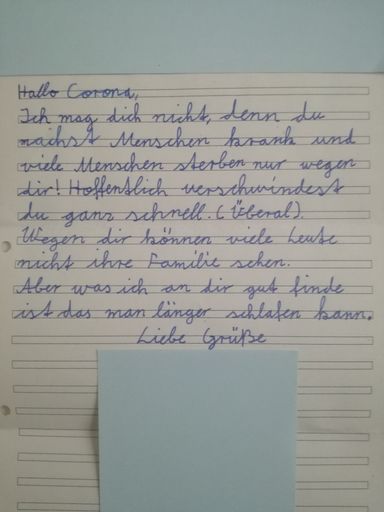 Hallo Corona,
Ich mag dich nicht, denn du
machst Menschen krank und
viele Menschen sterben nur wegen
dir! Hoffentlich verschwindest
du ganz schnell. (Überal).
Wegen dir können viele Leute
nicht ihre Familie sehen.
Aber was ich an dir gut finde
ist das man länger schlafen kann.
Liebe Grüße